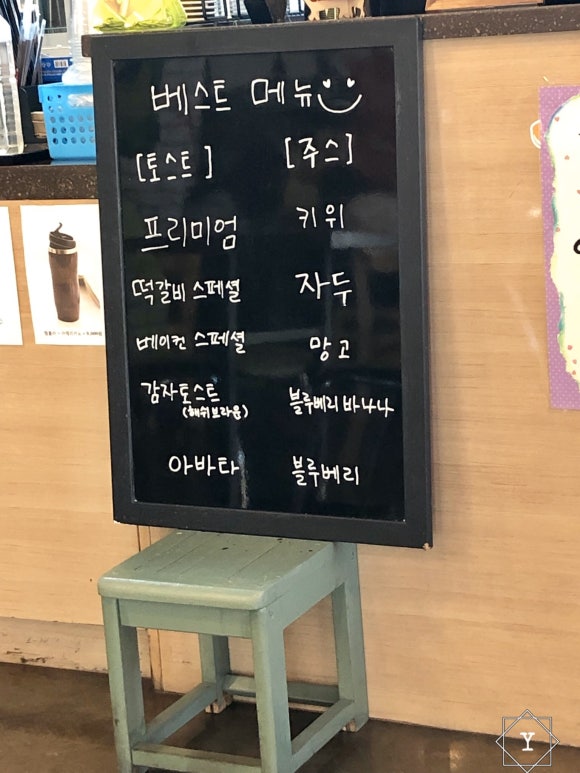 베스트 메뉴
[토스트] [주스]
프리미엄 키위
떡갈비 스페셜 자두
베이컨 스페셜 망고
감자토스트 블루베리 바나나
(해쉬브라운)
아바타 블루베리
Y